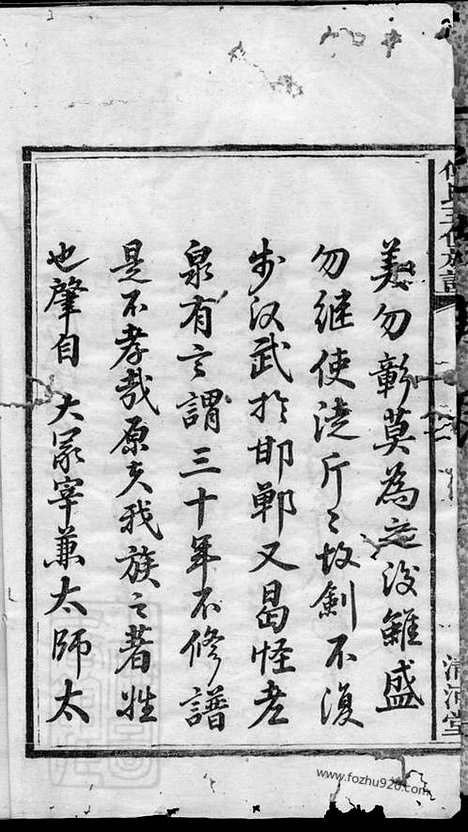 美勿彰莫為之後雖盛
勿継使澆斤〻故劍不復
步汉武於邯鄲又曷怪老
泉有言謂三十年不修譜
是不孝哉原夫我族之著姓
也肇自 大冢宰兼太師太
清河堂
www.fozhu920.com